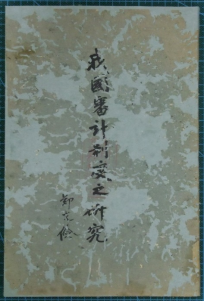 我國審計制度之研究